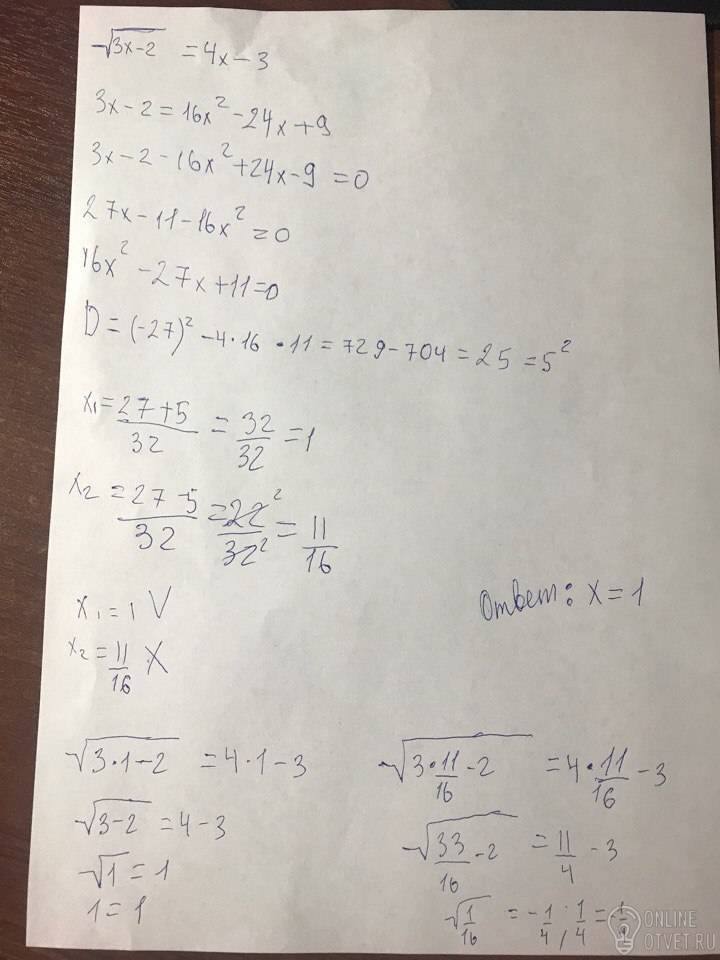 √3x-2 = 4x-3
3x-2 = 16x² - 24x + 9
3x - 2 - 16x² + 24x - 9 = 0
27x - 11 - 16x² = 0
16x² - 27x + 11 = 0
D = (-27)² - 4·16·11 = 729 - 704 = 25 = 5²
x₁ = 27+5/32 = 32/32 = 1
x₂ = 27-5/32 = 22/32 = 11/16
x₁ = 1 V
x₂ = 11/16 X
Ответ: x = 1
√3·1-2 = 4·1-3
√3-2 = 4-3
√1 = 1
1 = 1
√3·11/16-2 = 4·11/16-3
√33/16-2 = 11/4-3
√1/16 = -1/4, 1/4 =
ONLINE
OTVET.RU